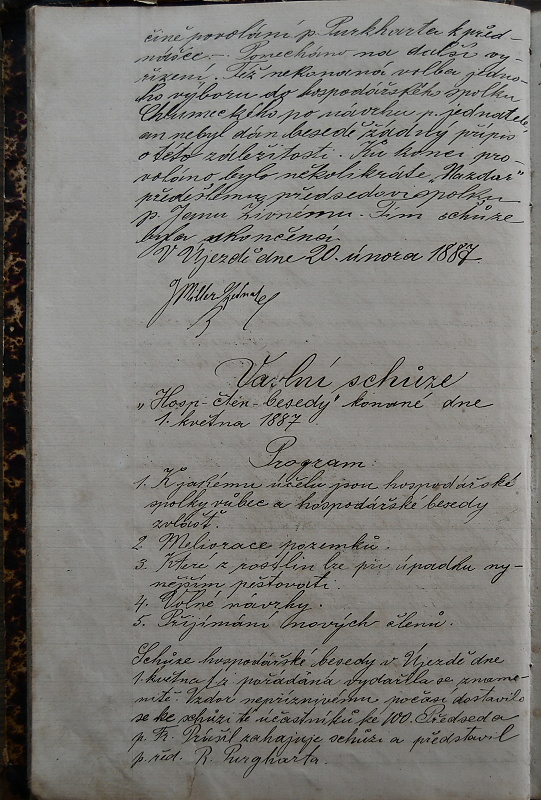 čině povolání p. Purkharta k před-
nášce. – Ponecháno na další vy-
řízení. Též nekonaná volba jedno-
ho výboru do hospodářského spolku
Chlumeckého po návrhu p. jednatele,
an nebyl dán besedě žádný přípis
o této záležitosti. Ku konci pro-
voláno bylo několikráte „Nazdar"
předešlému předsedovi spolku
p. Janu Živnému. Tím schůze
byla ukončena.
V Újezdě dne 20. února 1887.
J Miller
Valní schůze
„Hosp- čten- besedy" konané dne
1. května 1887
Program:
1. K jakému účelu jsou hospodářské
spolky vůbec a hospodářské besedy
zvlášť.
2. Meliorace pozemků.
3. Které z rostlin lze při úpadku ny-
nějším pěstovati.
4. Volné návrhy.
5. Přijímání nových členů.
Schůze hospodářské besedy v Újezdě dne
1. května t. r. pořádána vydařila se zname-
nitě. Vzdor nepříznivému počasí dostavilo
se ke schůzi te účastníků ke 100. Předseda
p. Fr. zahajuje schůzi a představil
p. řed. R. Purgharta.